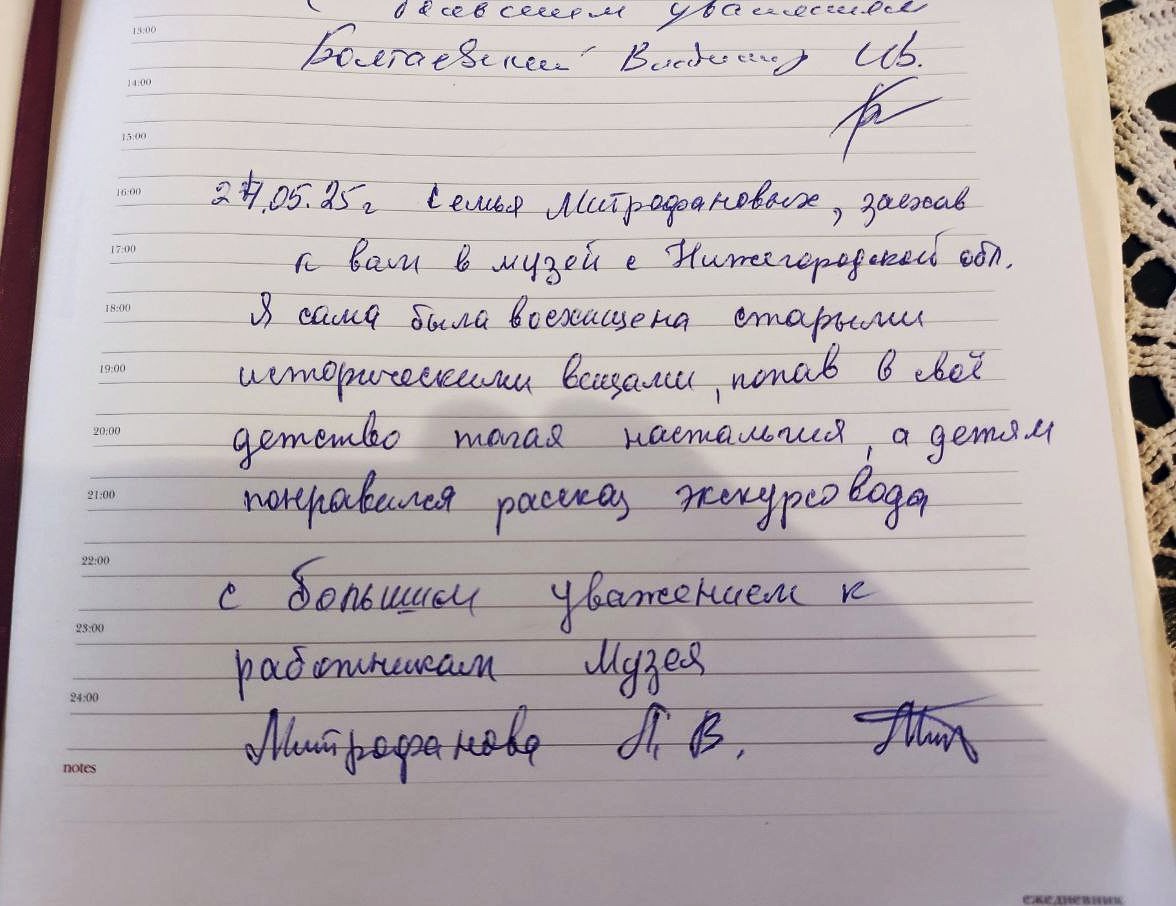 с большим уважением
13:00
Болтаевский Владимир Ив.
14:00
15:00
16:00
27.05.25г Семья Митрофановых, заехав
17:00
к вам в музей с Нижегородской обл.
18:00
Я сама была восхищена старыми
19:00
историческими вещами, попав в своё
20:00
детство такая настальгия, а детям
21:00
понравился рассказ экскурсовода,
22:00
с большим уважением к
23:00
работникам Музея
24:00
Митрофанова Л. В.
notes
ежедневник